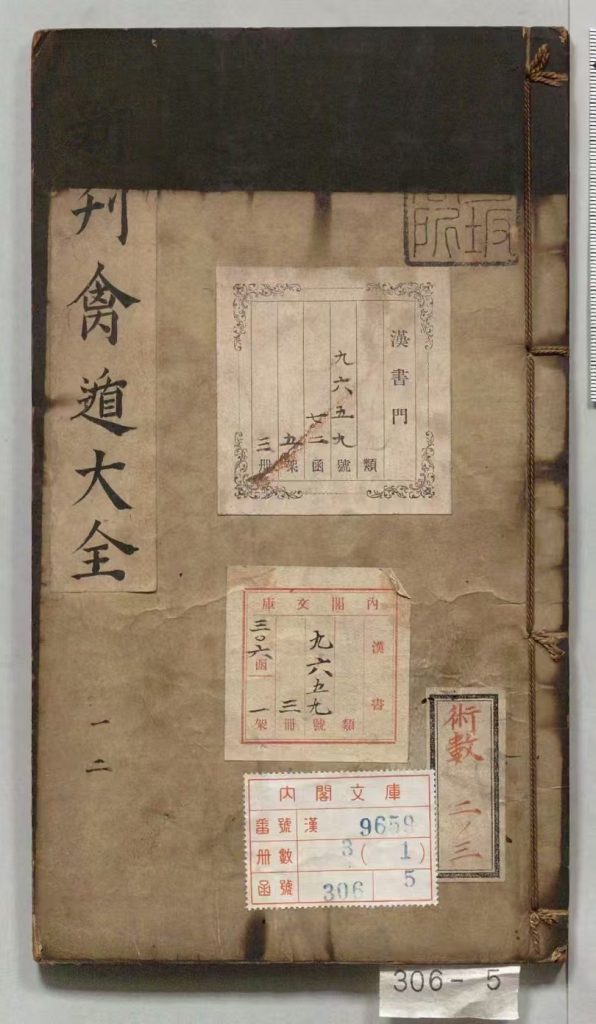 新刊禽遁大全
一二
漢書門
九六五九
廿二
五
三
類 號 函 架 冊
内閣文庫
漢書
九六五九
三
三〇六函
一
類 號 冊 架
術數
二ノ三
内閣文庫
番號 漢 9659
冊數 3 (1)
函號 306 5
306- 5